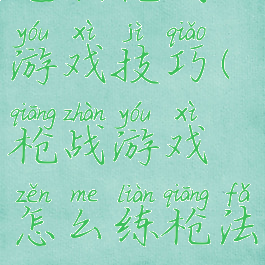 yóu xì jì qiǎo
游戏技巧(
qiāng zhàn yóu xì
枪战游戏
zěn me liàn qiāng fǎ
怎么练枪法